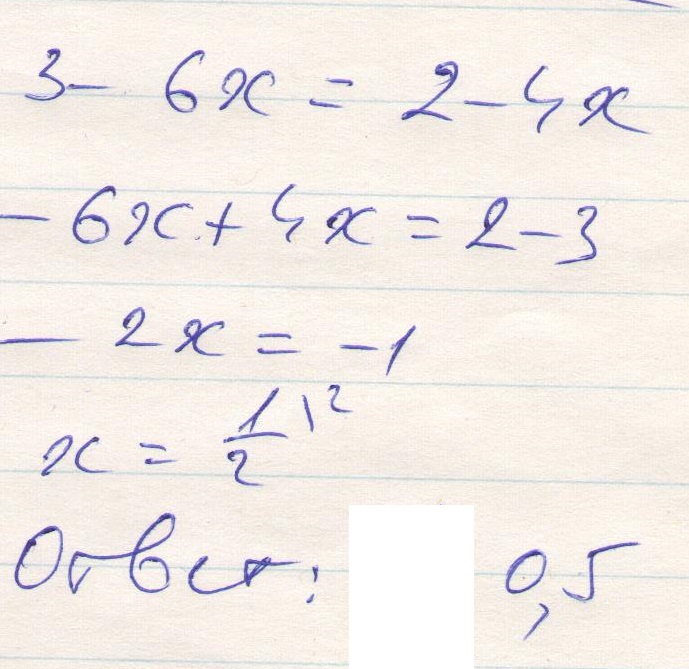 3 - 6x = 2 - 4x
- 6x + 4x = 2 - 3
- 2x = -1
x = 1/2 \2
Ответ: 0,5